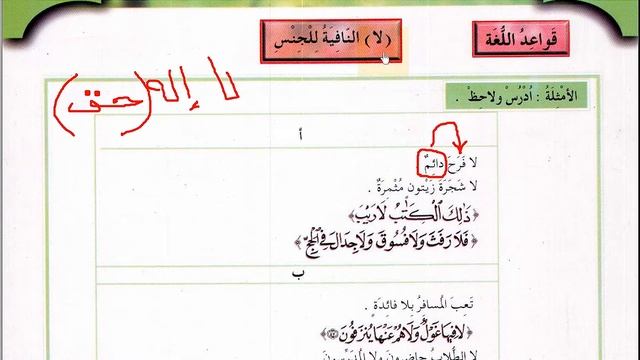 قَواعِدُ اللُّغَة
(لا) النَافِيَةُ لِلْجِنْسِ
لا إله (حق)
الأَمْثِلَةُ : اُدْرُسْ ولاحِظْ .
أ
لا فَرَحَ دائِمٌ
لا شَجَرَةَ زَيْتونٍ مُثْمِرَةٌ .
﴿ذَٰلِكَ الْكِتَابُ لَا رَيْبَ﴾
﴿فَلَا رَفَثَ وَلَا فُسُوقَ وَلَا جِدَالَ فِي الْحَجِّ﴾
ب
تَعِبَ المُسافِرُ بِلا فائِدَةٍ .
﴿لَا فِيهَا غَوْلٌ وَلَا هُمْ عَنْهَا يُنزَفُونَ﴾
لا الطُّلّابُ حاضِرونَ ولا المُدَرِّسونَ